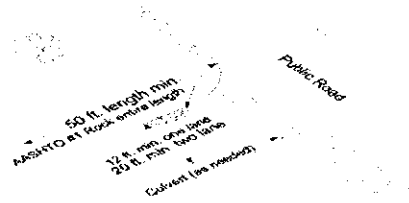 50 ft. length min.
AASHTO #1 Rock entire length
12 ft. min. one lane
20 ft. min. two lane
Culvert (as needed)
Public Road